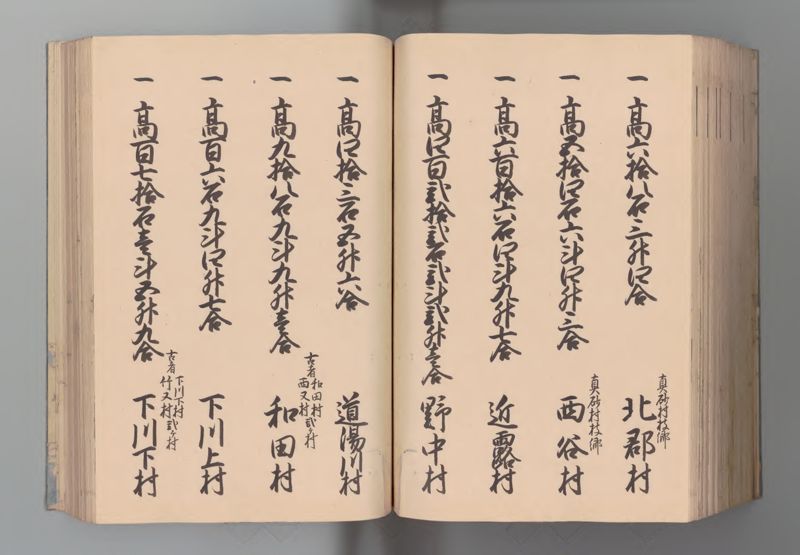 一 高六拾八石三升四合
真砂村枝郷
北郡村
一 高五拾四石六斗四升三合
真砂村枝郷
西谷村
一 高六百拾六石四斗九升七合
近露村
一 高四百弐拾弐石弐斗弐升壱合
野中村
一 高四拾三石五升六合
道湯川村
一 高九拾八石九斗九升壱合
古者和田村
西又村弐ヶ村
和田村
一 高百六石九斗四升七合
下川上村
一 高百七拾石壱斗五升九合
古者 下川下村
竹又村弐ヶ村
下川下村